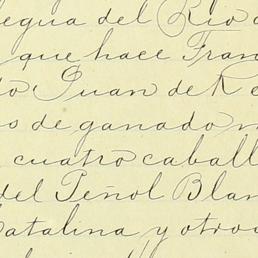 legua del Rio d
que hace Fran
do Juan de Re
os de ganado m
cuatro caball
del Peñol Blan
Catalina y otros